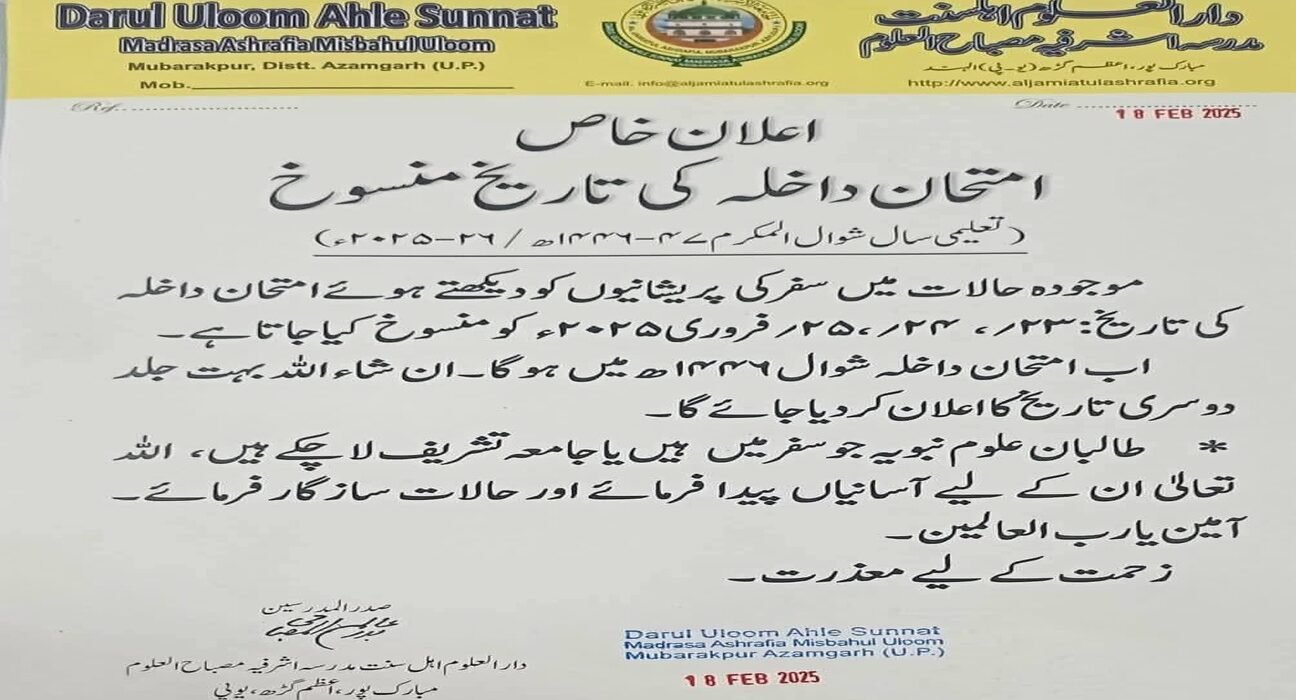 Darul Uloom Ahle Sunnat
Madrasa Ashrafia Misbahul Uloom
Mubarakpur, Distt. Azamgarh (U.P.)
Mob.
دارالعلوم اہلسنت
مدرسہ اشرفیہ مصباح العلوم
مبارک پور، اعظم گڑھ (یو-پی) الہند
E-mail. info@aljamiatulashrafia.org
http://www.aljamiatulashrafia.org
Ref.
Date
18 FEB 2025
اعلان خاص
امتحان داخلہ کی تاریخ منسوخ
(تعلیمی سال شوال المکرم ۴۷-۱۴۴۶ھ / ۲۶-۲۰۲۵ء)
موجودہ حالات میں سفر کی پریشانیوں کو دیکھتے ہوئے امتحان داخلہ
کی تاریخ: ۲۳؍، ۲۴؍، ۲۵؍ فروری ۲۰۲۵ء کو منسوخ کیا جاتا ہے۔
اب امتحان داخلہ شوال ۱۴۴۶ھ میں ہوگا۔ ان شاء اللہ بہت جلد
دوسری تاریخ کا اعلان کر دیا جائے گا۔
* طالبان علوم نبویہ جو سفر میں ہیں یا جامعہ تشریف لا چکے ہیں، اللہ
تعالیٰ ان کے لیے آسانیاں پیدا فرمائے اور حالات سازگار فرمائے۔
آمین یارب العالمین۔
زحمت کے لیے معذرت۔
صدر المدرسین
دارالعلوم اہل سنت مدرسہ اشرفیہ مصباح العلوم
مبارک پور، اعظم گڑھ، یوپی
Darul Uloom Ahle Sunnat
Madrasa Ashrafia Misbahul Uloom
Mubarakpur Azamgarh (U.P.)
18 FEB 2025